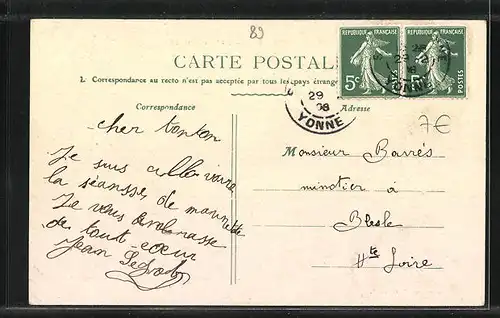 89
CARTE POSTAL
1. Correspondance au recto n'est pas acceptée par tous les pays étrange
REPUBLIQUE FRANÇAISE REPUBLIQUE FRANÇAISE
5c 5c
POSTES
29
08
YONNE
29
YONNE
Correspondance
Adresse
7€
cher tonton
Je suis allé
la séansse de
Je vous
de tout cœur
Jean
Monsieur Barrés
minotier à
Blesle
Hte Loire